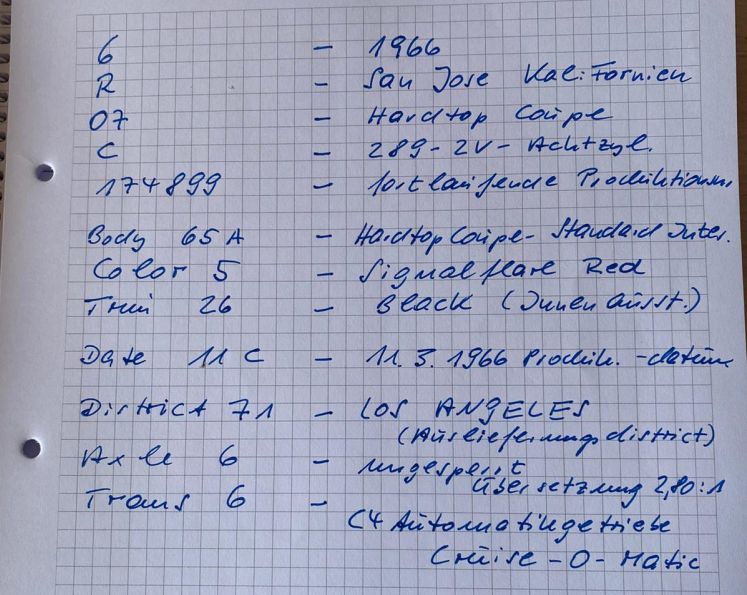 6 – 1966
R – San Jose Kalifornien
07 – Hardtop Coupe
C – 289-2V-Achtzyl.
174899 – fortlaufende Produktionsnr
Body 65A – Hardtop Coupe- Standard Inter.
Color 5 – Signalflare Red
Trim 26 – Black (Innenausst.)
Date 11 C – 11. 3. 1966 Produk. -datum
District 71 – LOS ANGELES
(Auslieferungsdistrict)
Axle 6 – ungesperrt
Übersetzung 2,80:1
Trans 6 –
C4 Automatikgetriebe
Cruise-O-Matic